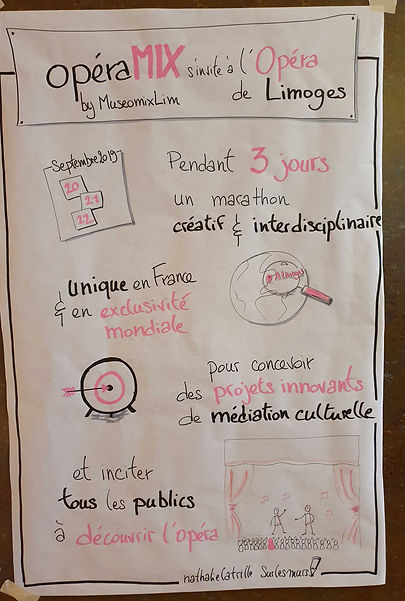 opéraMIX s'invite à l'Opéra
by MuseomixLim de Limoges
Septembre 2019
20
21
22
Pendant 3 jours
un marathon
créatif & interdisciplinaire
& unique en France
& en exclusivité
mondiale
à Limoges
pour concevoir
des projets innovants
de médiation culturelle
et inciter
tous les publics
à découvrir l'opéra
nathalie Latrille Surlesmurs!